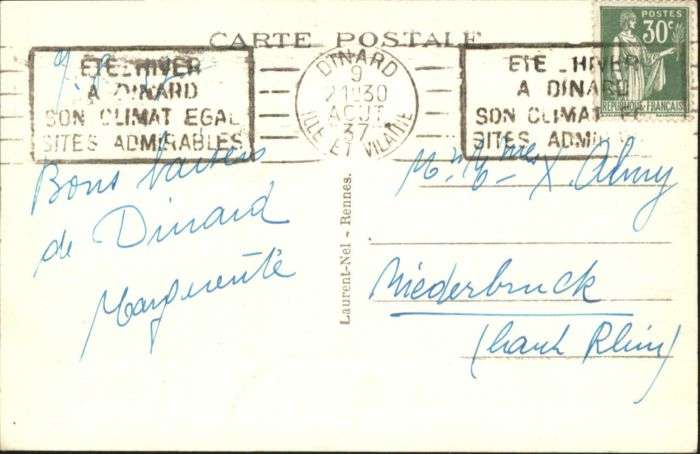 CARTE POSTALE
POSTES
30c
RÉPUBLIQUE FRANÇAISE
ETE - HIVER
A DINARD
SON CLIMAT EGAL
SITES ADMIRABLES
DINARD
9
21H30
AOUT
37
ILLE ET VILAINE
ETE - HIVER
A DINARD
SON CLIMAT
SITES ADMI
Bons baisers
de Dinard
Marguerite
Laurent-Nel - Rennes.
X. Almy
Niederbruck
(haut Rhin)